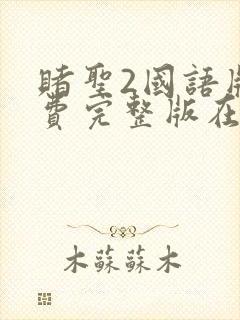 賭聖2國語
費完整版在
木蘇蘇木